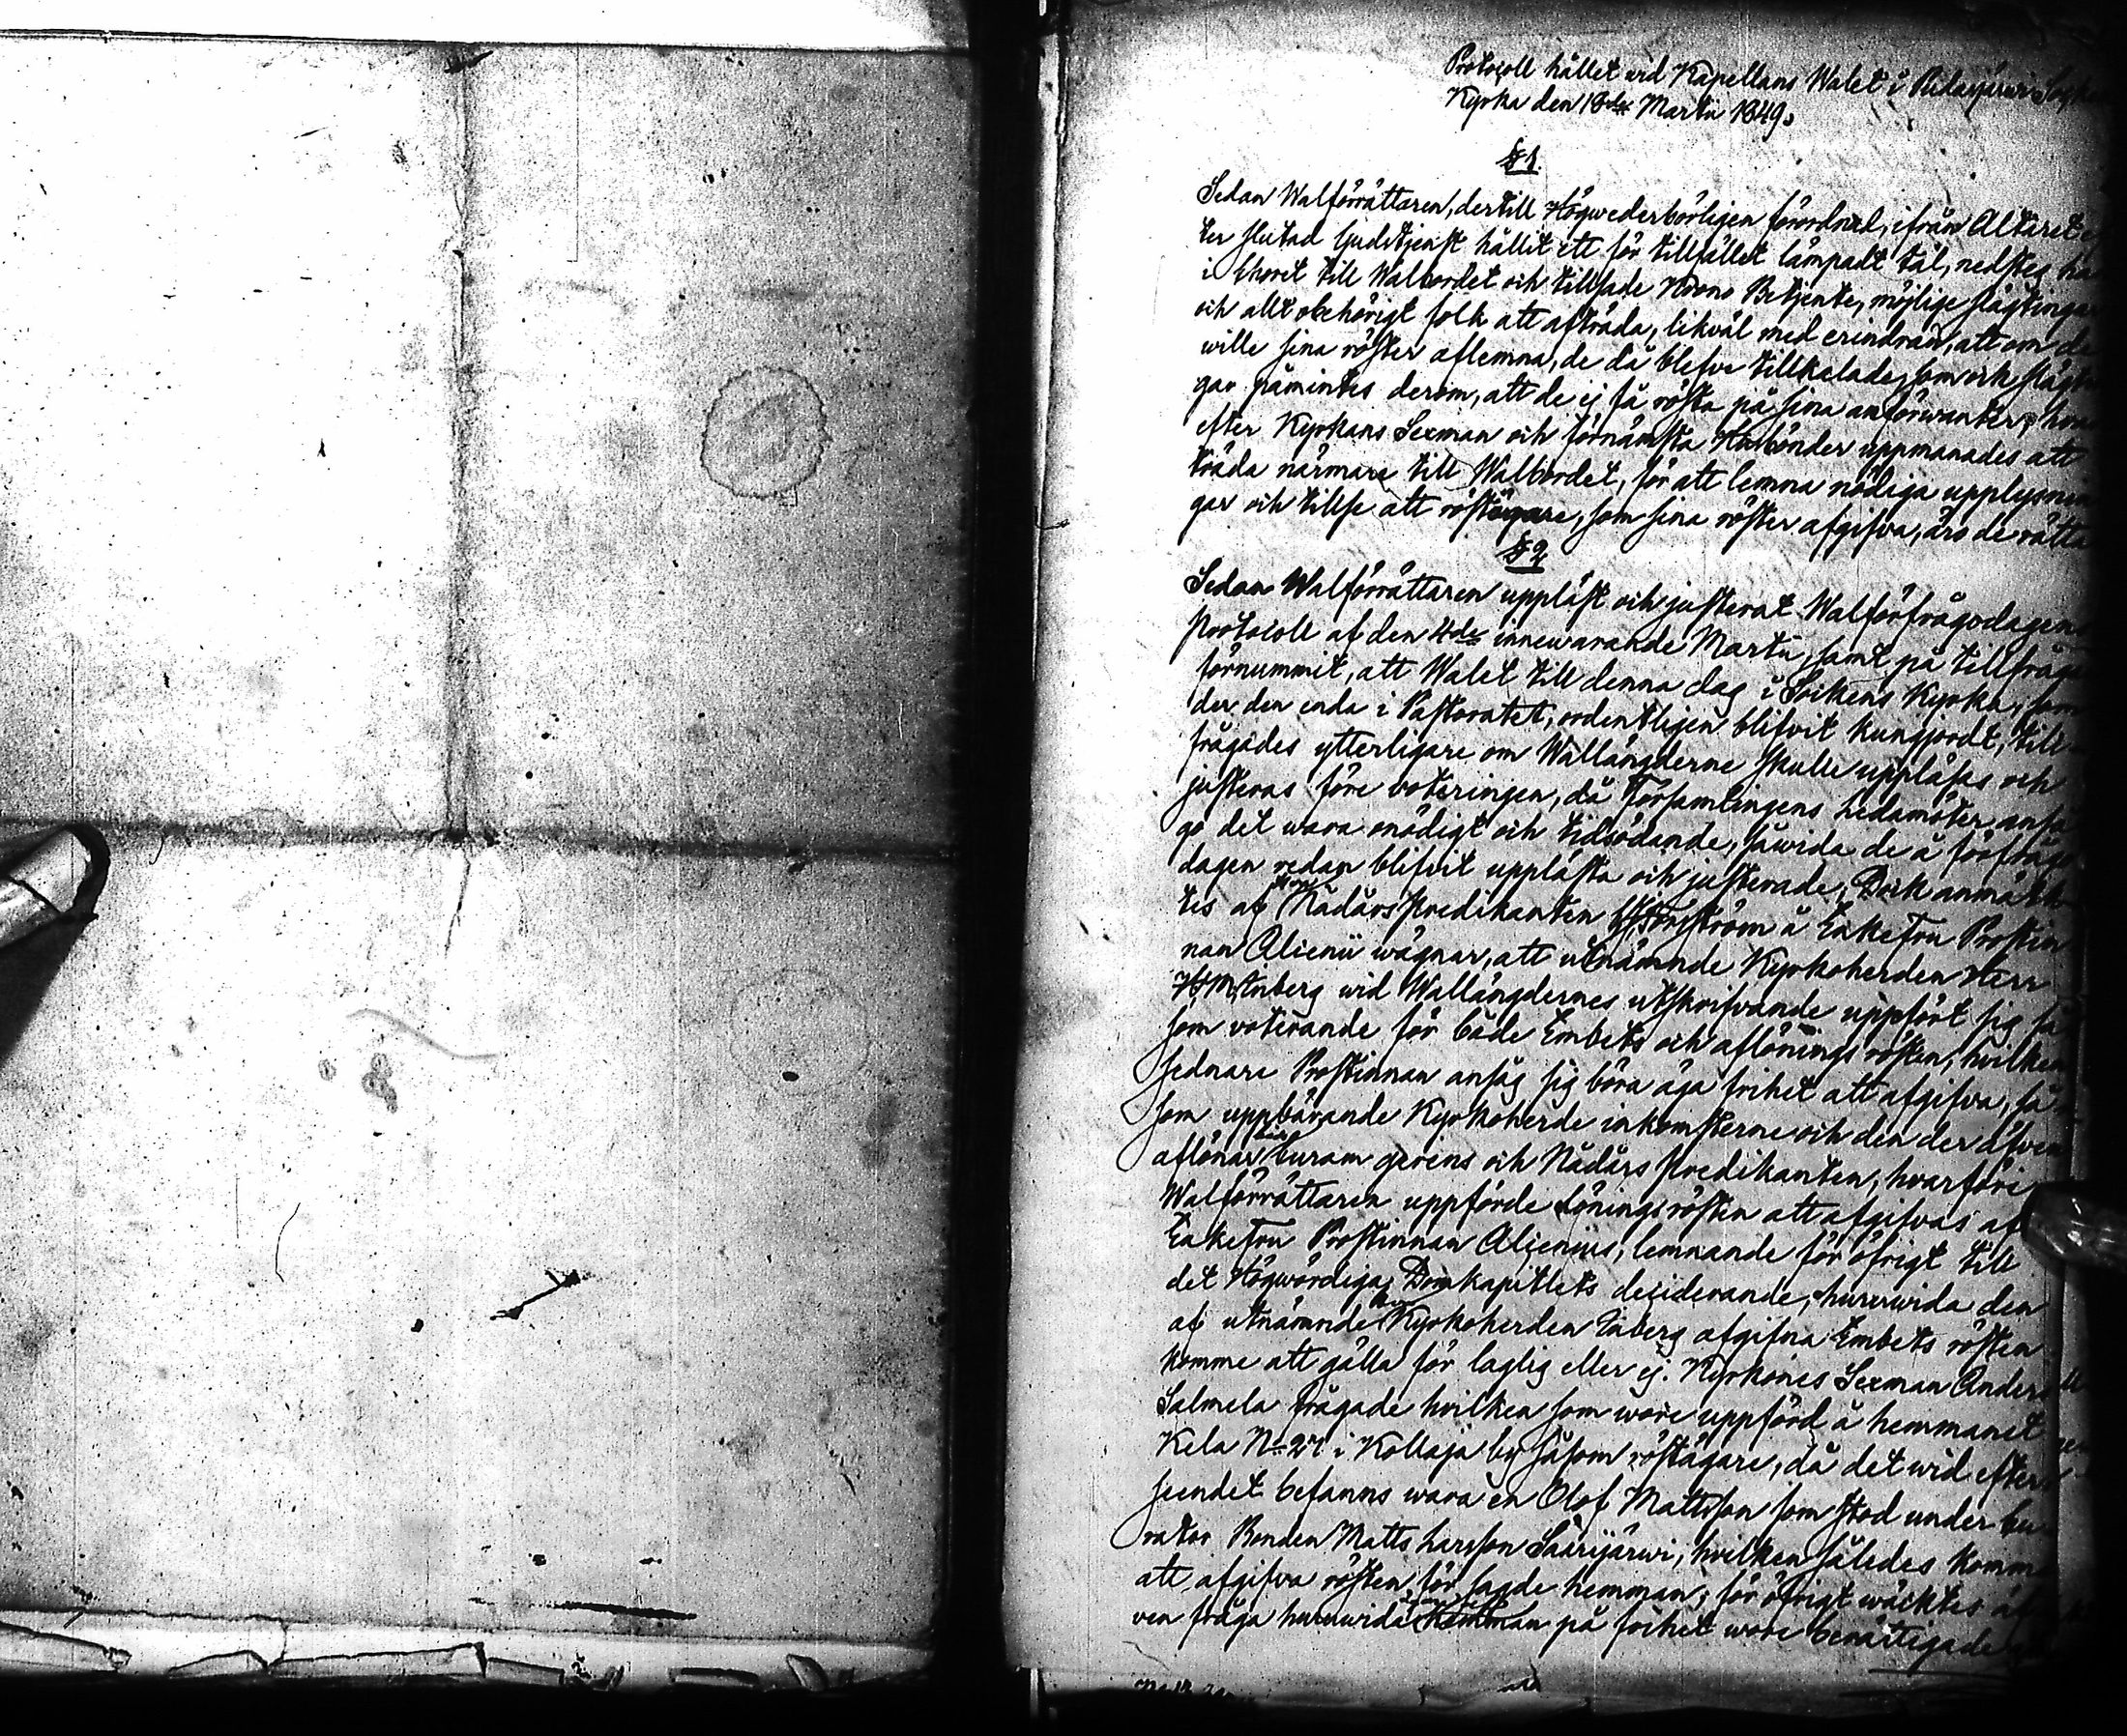 Protocoll hållet vid Kapellans Walet i Pudasjärvi
Kyrka den 18de Martii 1849.
§ 1.
Sedan Walförrättaren, dertill Högvederbörligen förordnad, ifrån Altaret ef
ter slutad Gudstjenst hållit ett för tillfället lämpadt tal, nedsteg han
i Choret till Walbordet och tillsade Krono Betjente, möjlige slägtingar
och allt obehörigt folk att afträda, likväl med erindran, att om de
wille sina röster aflemna, de då blefve tillkalade, som ock slägtin
gar påmintes derom, att de ej få rösta på sina anförwanter, hvar
efter Kyrkans Sexman och förnämsta bönder uppmanades att
träda närmare till Walbordet, för att lemna nödiga upplysnin
gar och tillse att röstägare, som sina röster afgifva, äro de rätta
§ 2
Sedan Walförrättaren uppläst och justerat Walförfrågodagens
Protocoll af den 4de innewarande Martii, samt på tillfrågan
förnummit, att Walet till denna dag i Sockens Kyrka, som
der den enda i Pastoratet, ordentligen blifvit kungjordt, till-
frågades ytterligare om Wallängderne skulle uppläsas och
justeras före voteringen, då Församlingens Ledamöter anså
go det wara onödigt och tidsödande, såwida de å förfrågo
dagen redan blifvit upplästa och justerade; Dock anmärk
tes af Herr Nådårs Predikanten Forsström å Enke Fru Prostin
nan Alcenii wägnar, att utnämnde Kyrkoherden Herr
H.M. Enberg wid Wallängdernes utskrifvande uppfört sig så
som voterande för både Embets och aflönings rösten, hvilken
sednare Prostinnan ansåg sig böra äga frihet att afgifva, så
som uppbärande Kyrkoherde inkomsterne och den der äfven
aflönar curam gerens och Nådårs Predikanten, hvarföre
Walförrättaren uppförde Löningsrösten att afgifvas af
Enke Fru Prostinnan Alcenius, lemnande för öfrigt till
det Högwördiga Domkapitlets deciderande, huruwida den
af utnämnde Herr Kyrkoherden Enberg afgifna Embets rösten
komme att gälla för laglig eller ej. Kyrkones Sexman Anders
Salmela frågade hvilken som wore uppförd å hemmanet
Kela No 27 i Kollaja by såsom röstägare, då det wid efter
seendet befanns wara en Olof Mattsson som stod under cu
rator Bonden Matts Larsson Säärijärwi, hvilken således komme
att afgifva rösten för sagde hemman; för öfrigt wäcktes äf
ven fråga huruwida hemman på frihet wore berättigade